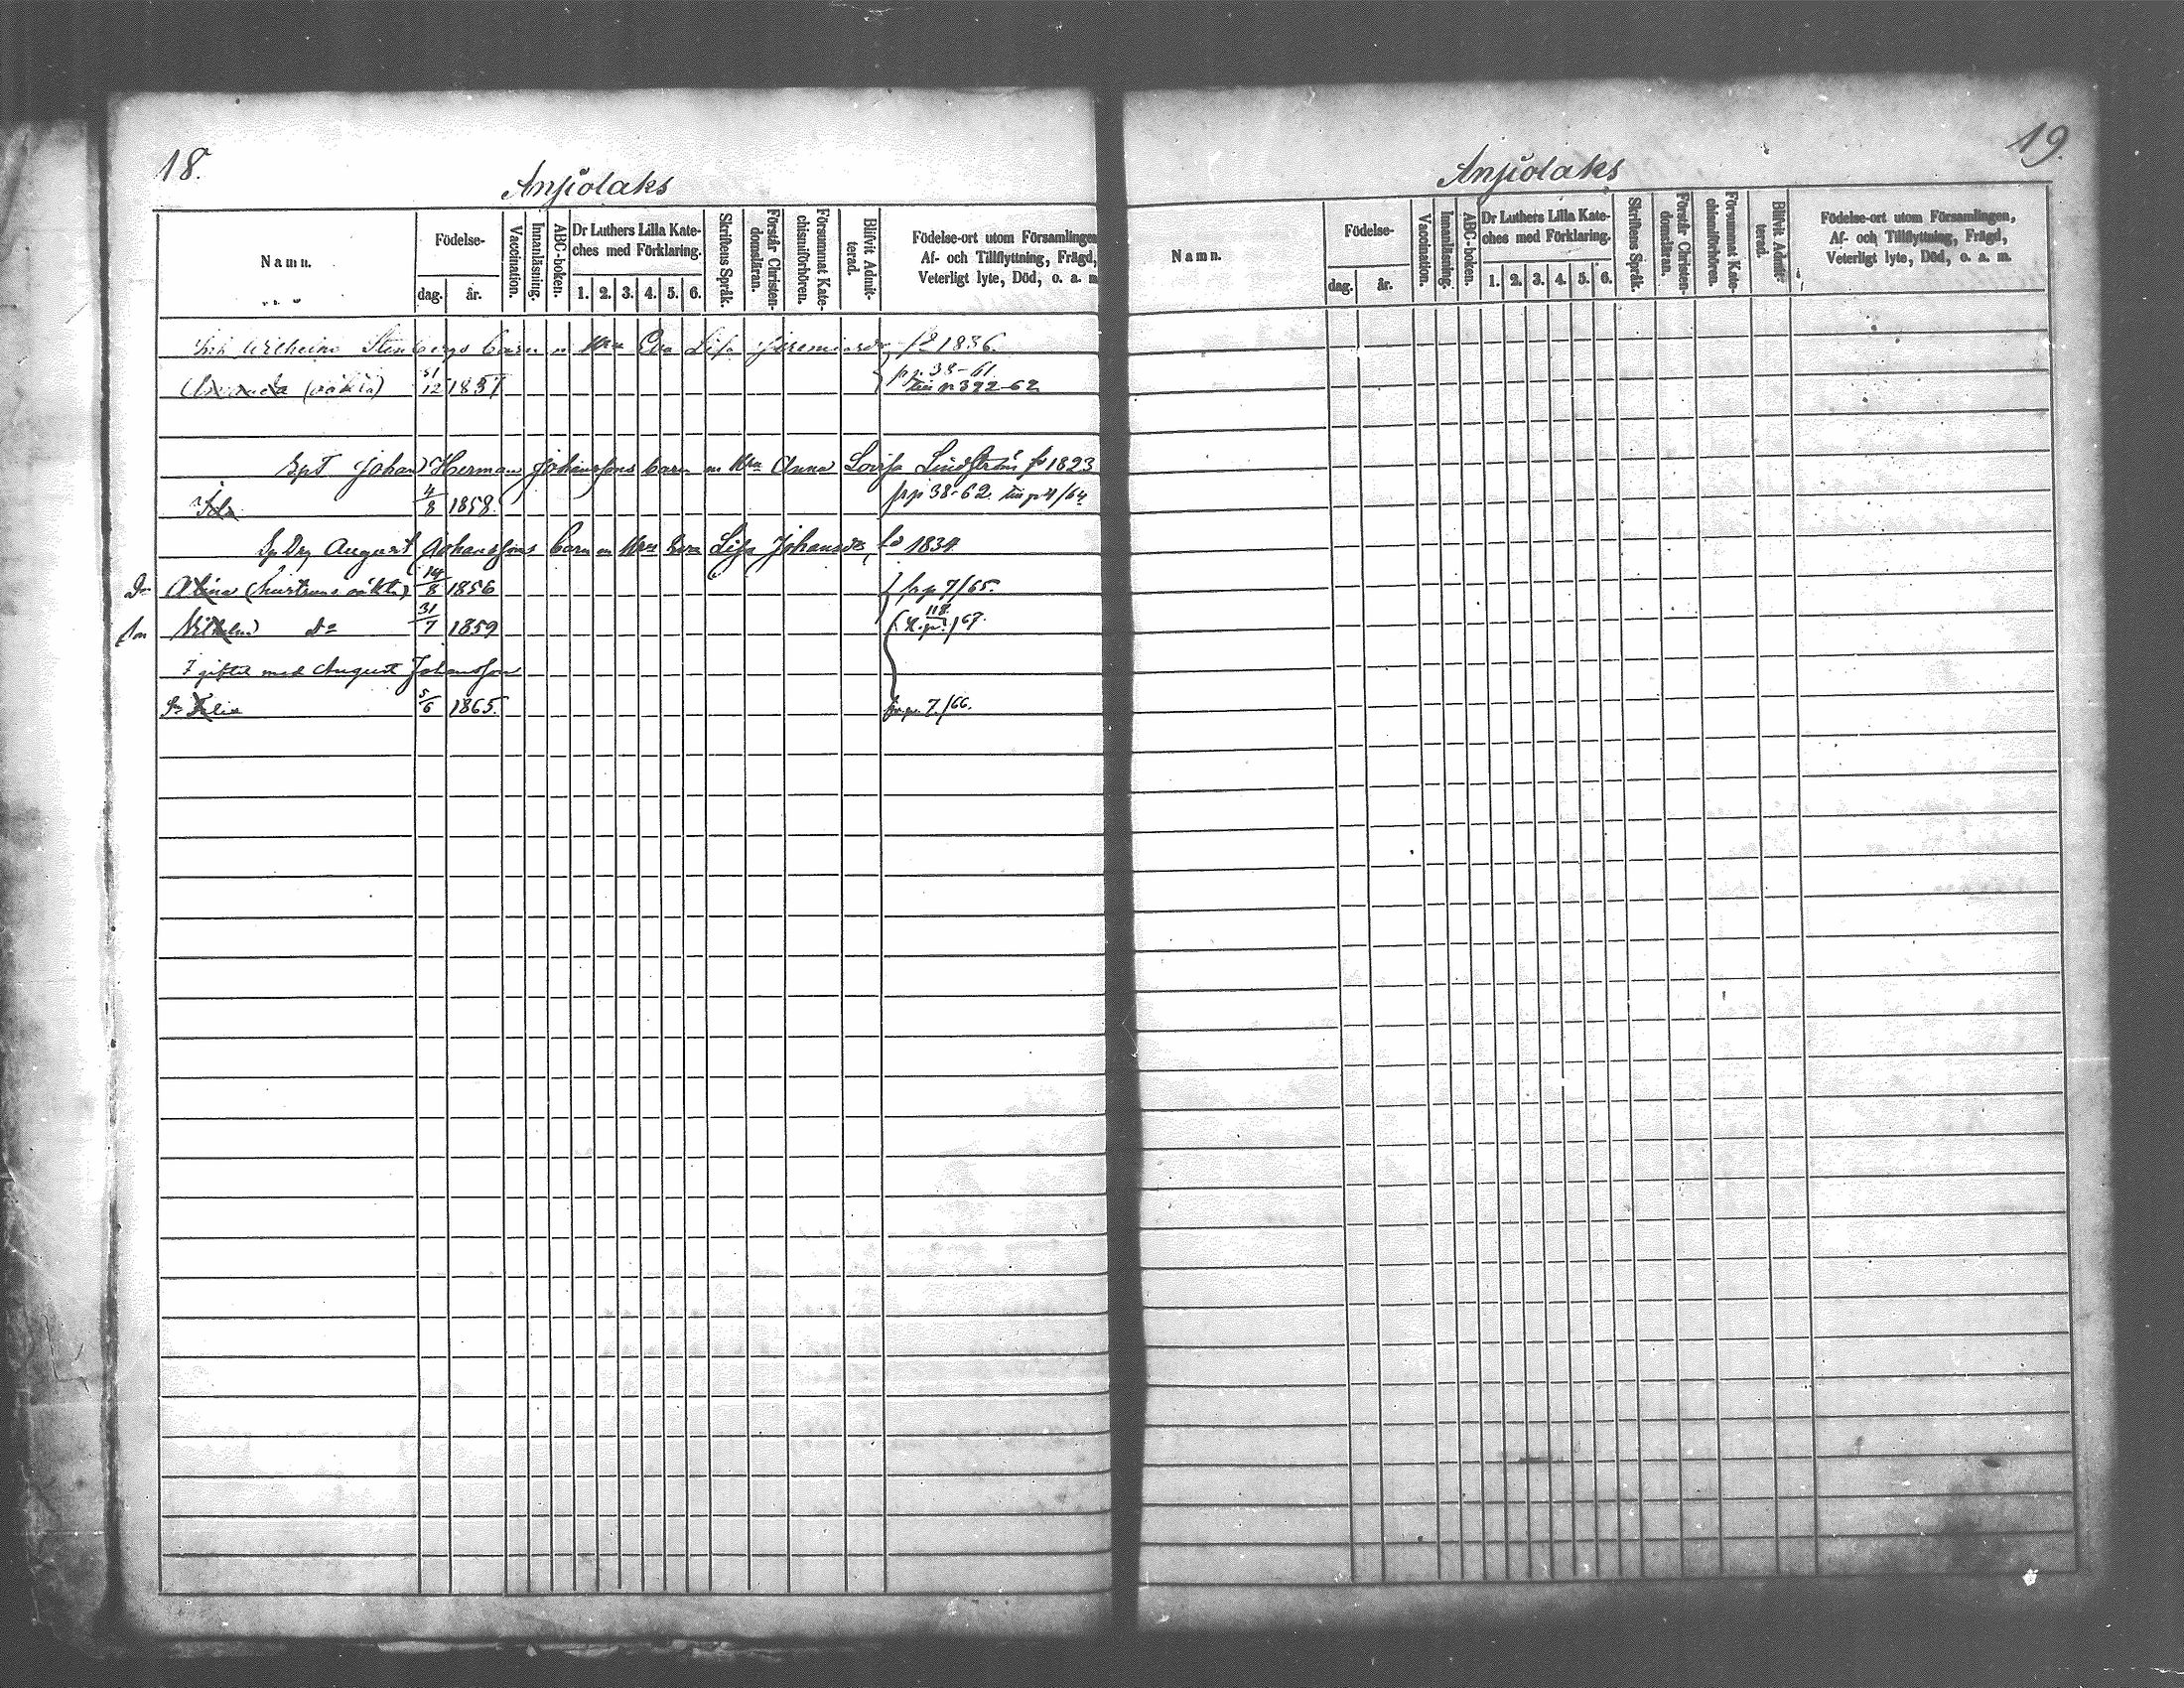 18.
Anjiolaks
Namn.
Födelse-
dag.
år.
Vaccination.
Innanläsning.
ABC-boken.
Dr Luthers Lilla Kate-
ches med Förklaring.
1. 2. 3. 4. 5. 6.
Skriftens Språk.
Förstår Christen-
domsläran.
Försummat Kate-
chismiförhören.
Blifvit Admit-
terad.
Födelse-ort utom Församlingen
Af- och Tillflyttning, Frägd,
Veterligt lyte, Död, o. a. m
Wilhelms Stenbergs barn m Hru Eva Lisa fö 1836.
(oäkta) 31/12 1851 pr p. 38-61.
392-62
Johan Herman Johanssons barn m Hru Anna Lovisa Lindström fö 1823
Ida 4/8 1858. pr p 38-62. 4/64
August Johanssons barn m Hru Eva Lisa Johansdr, fö 1834
Dr Alina (hustruns oäkta) 14/8 1856 pr p 7/65.
Son Vilhelm do 31/7 1859 118/67.
I giftet med August Johansson
Dr 5/6 1865. pr p. 7/66.
19.
Anjiolaks
Namn.
Födelse-
dag.
år.
Vaccination.
Innanläsning.
ABC-boken.
Dr Luthers Lilla Kate-
ches med Förklaring.
1. 2. 3. 4. 5. 6.
Skriftens Språk.
Förstår Christen-
domsläran.
Försummat Kate-
chismiförhören.
Blifvit Admit-
terad.
Födelse-ort utom Församlingen,
Af- och Tillflyttning, Frägd,
Veterligt lyte, Död, o. a. m.